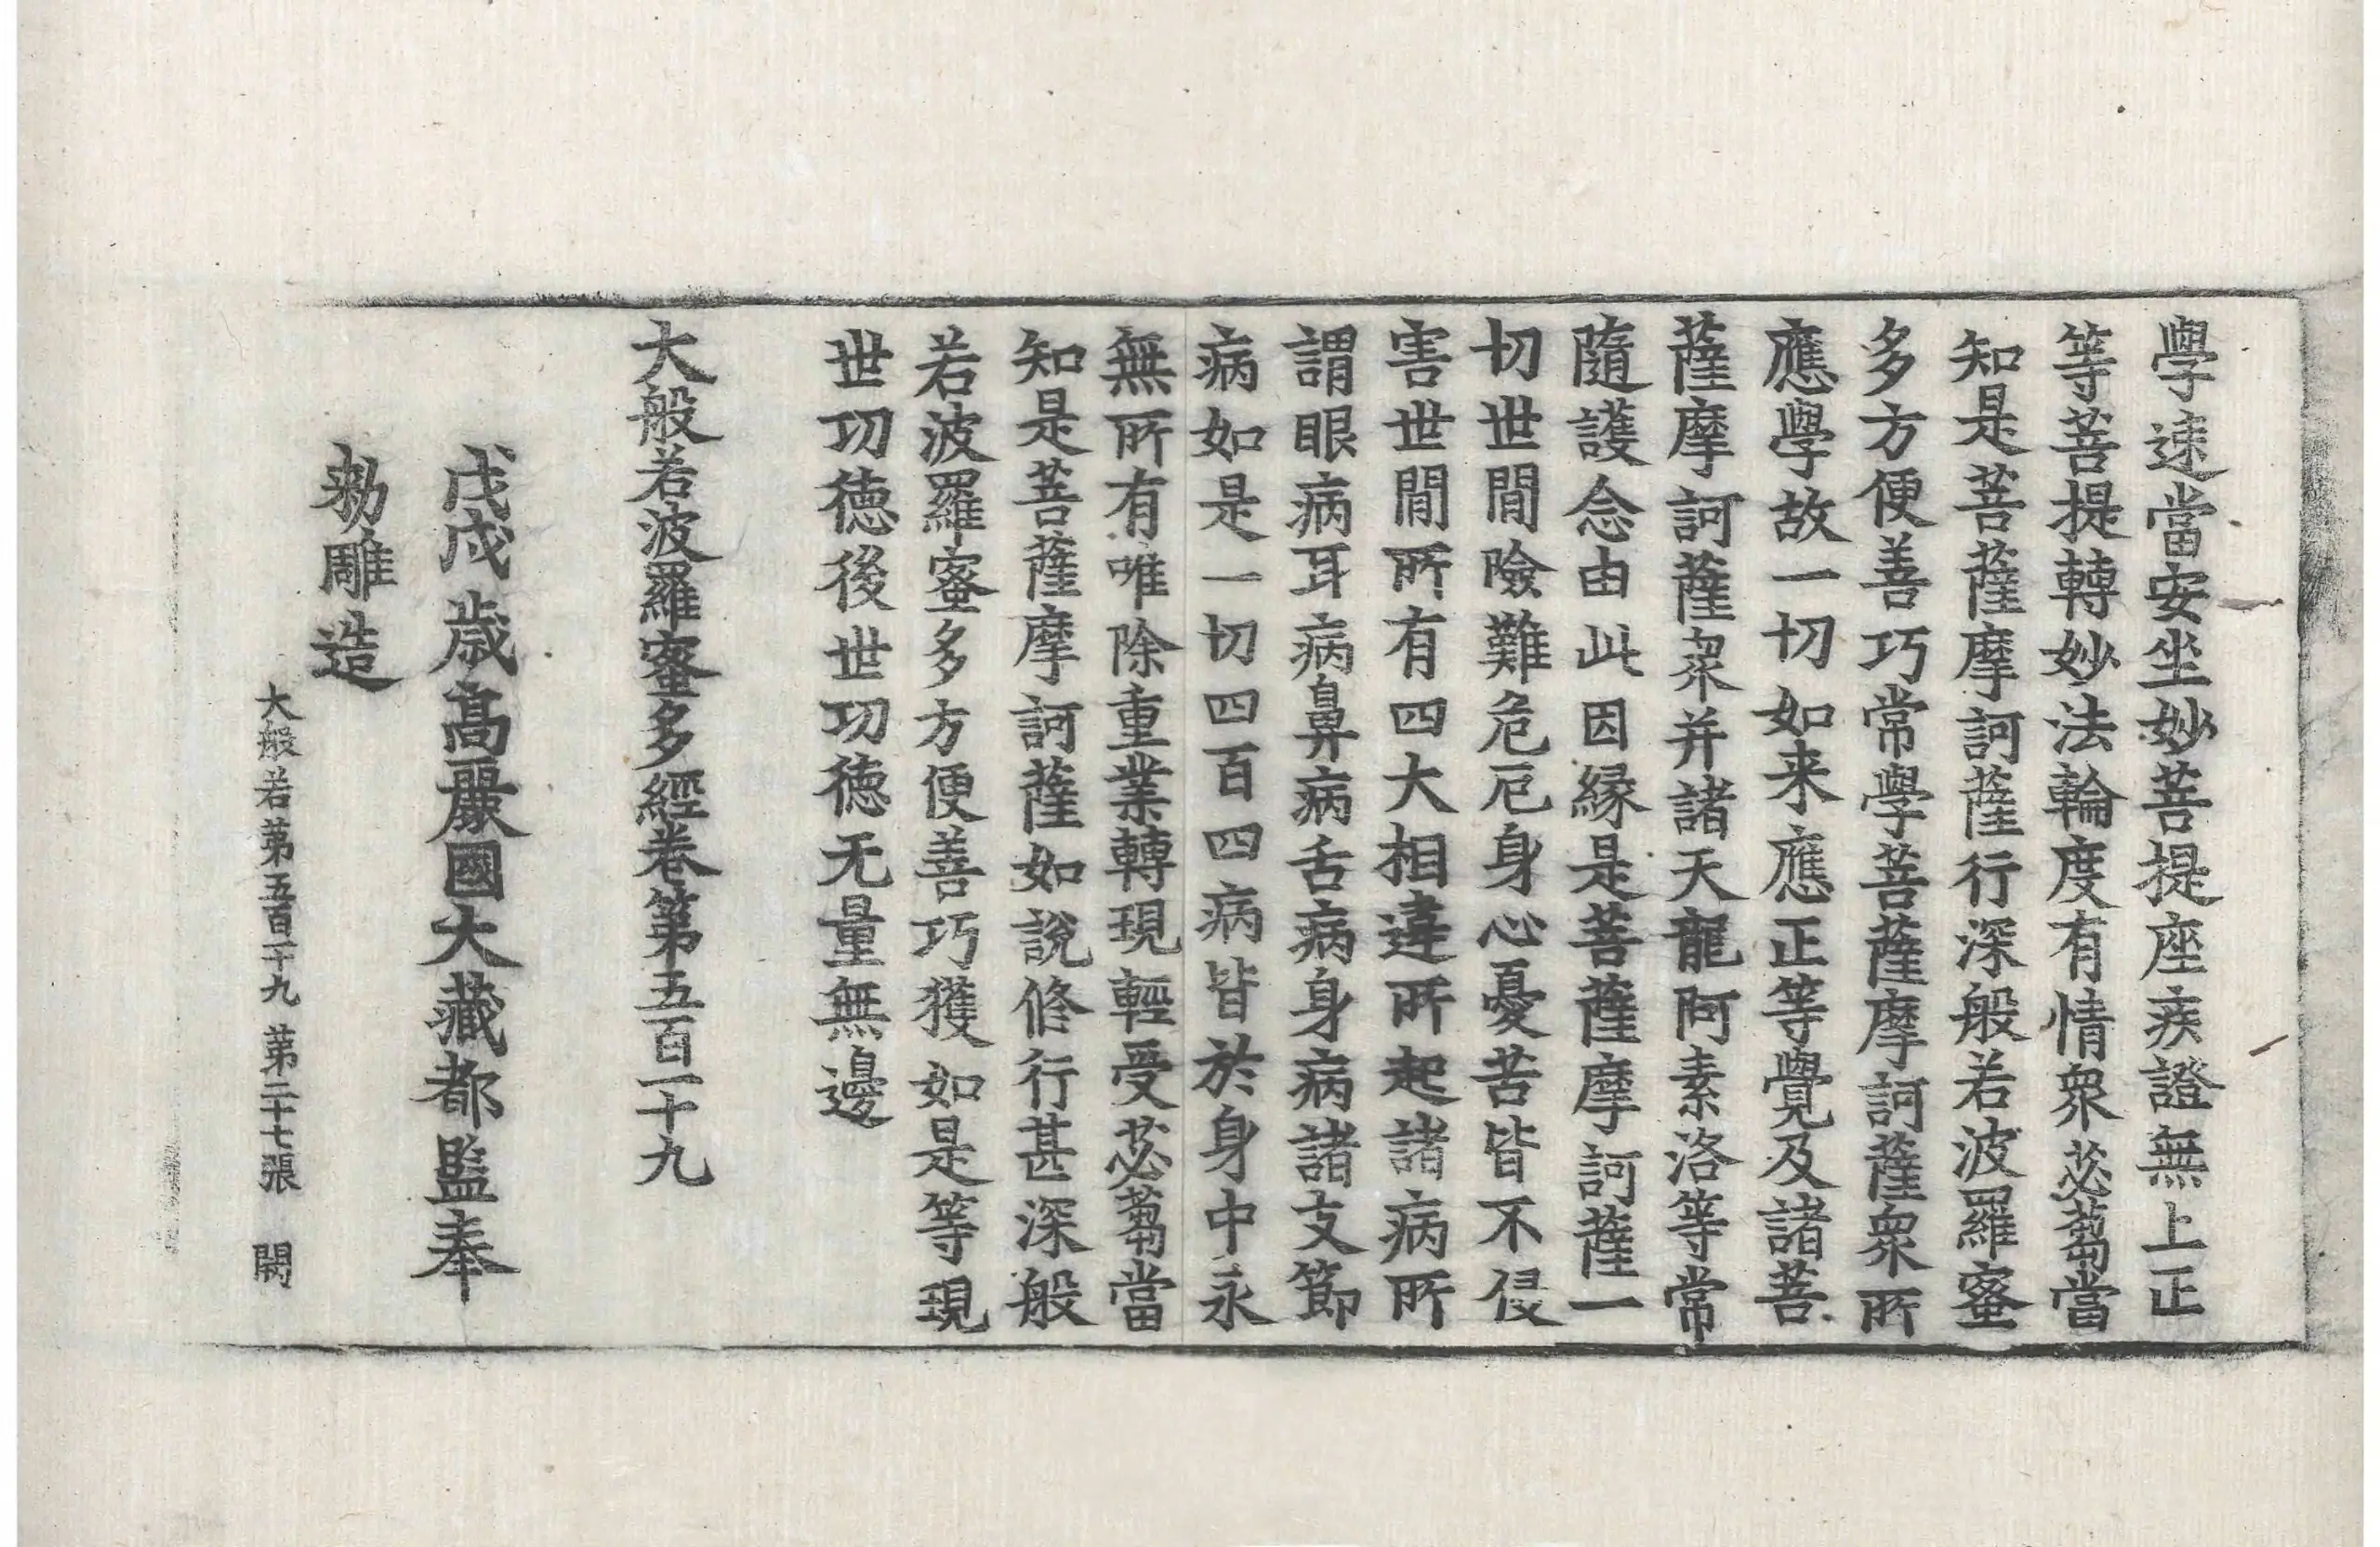 學速當安坐妙菩提座疾證無上正
等菩提轉妙法輪度有情衆苾蒭當
知是菩薩摩訶薩行深般若波羅蜜
多方便善巧常學菩薩摩訶薩衆所
應學故一切如来應正等覺及諸菩
薩摩訶薩衆并諸天龍阿素洛等常
隨護念由此因緣是菩薩摩訶薩一
切世間險難危厄身心憂苦皆不侵
害世間所有四大相違所起諸病所
謂眼病耳病鼻病舌病身病諸支節
病如是一切四百四病皆於身中永
無所有唯除重業轉現輕受苾蒭當
知是菩薩摩訶薩如說修行甚深般
若波羅蜜多方便善巧獲如是等現
世功德後世功德无量無邊
大般若波羅蜜多經卷第五百一十九
戊戌歲高麗國大藏都監奉
勑雕造
大般若第五百一十九 第二十七張 闕